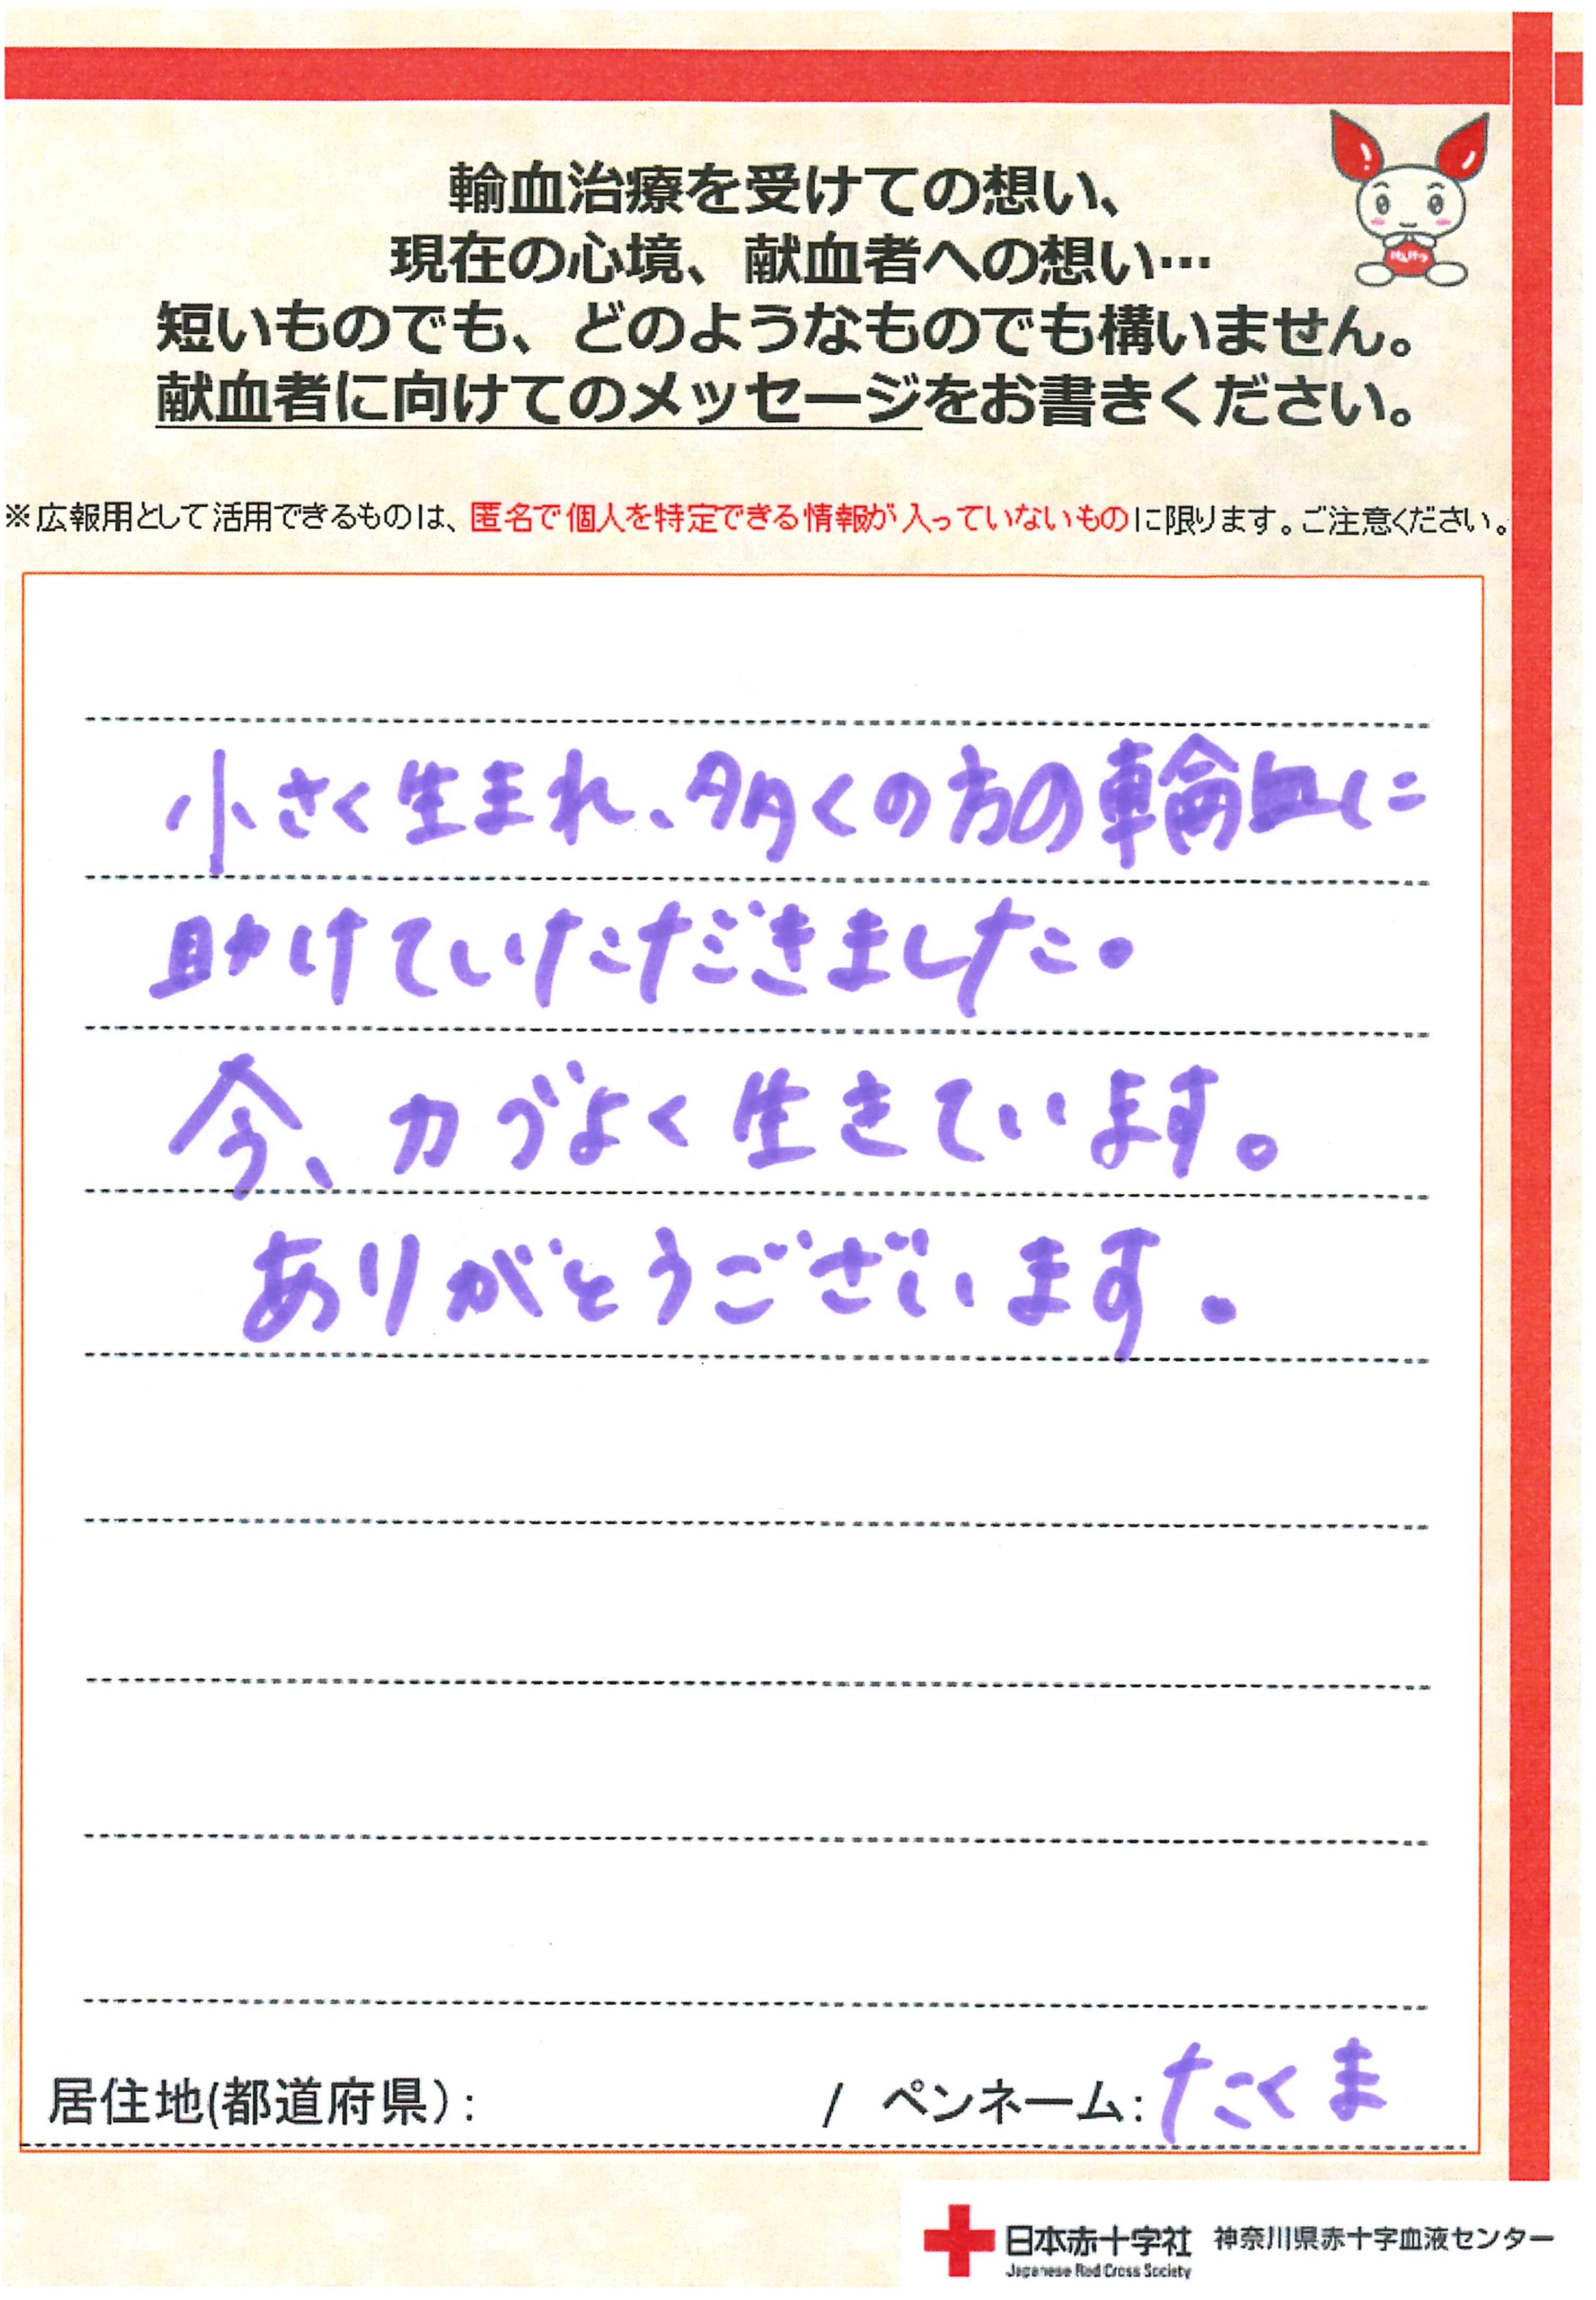 輸血治療を受けての想い、
現在の心境、献血者への想い…
短いものでも、どのようなものでも構いません。
献血者に向けてのメッセージをお書きください。
※広報用として活用できるものは、匿名で個人を特定できる情報が入っていないものに限ります。ご注意ください。
小さく生まれ、多くの方の輸血に
助けていただきました。
今、力づよく生きています。
ありがとうございます。
居住地(都道府県): / ペンネーム:たくま
日本赤十字社 神奈川県赤十字血液センター
Japanese Red Cross Society